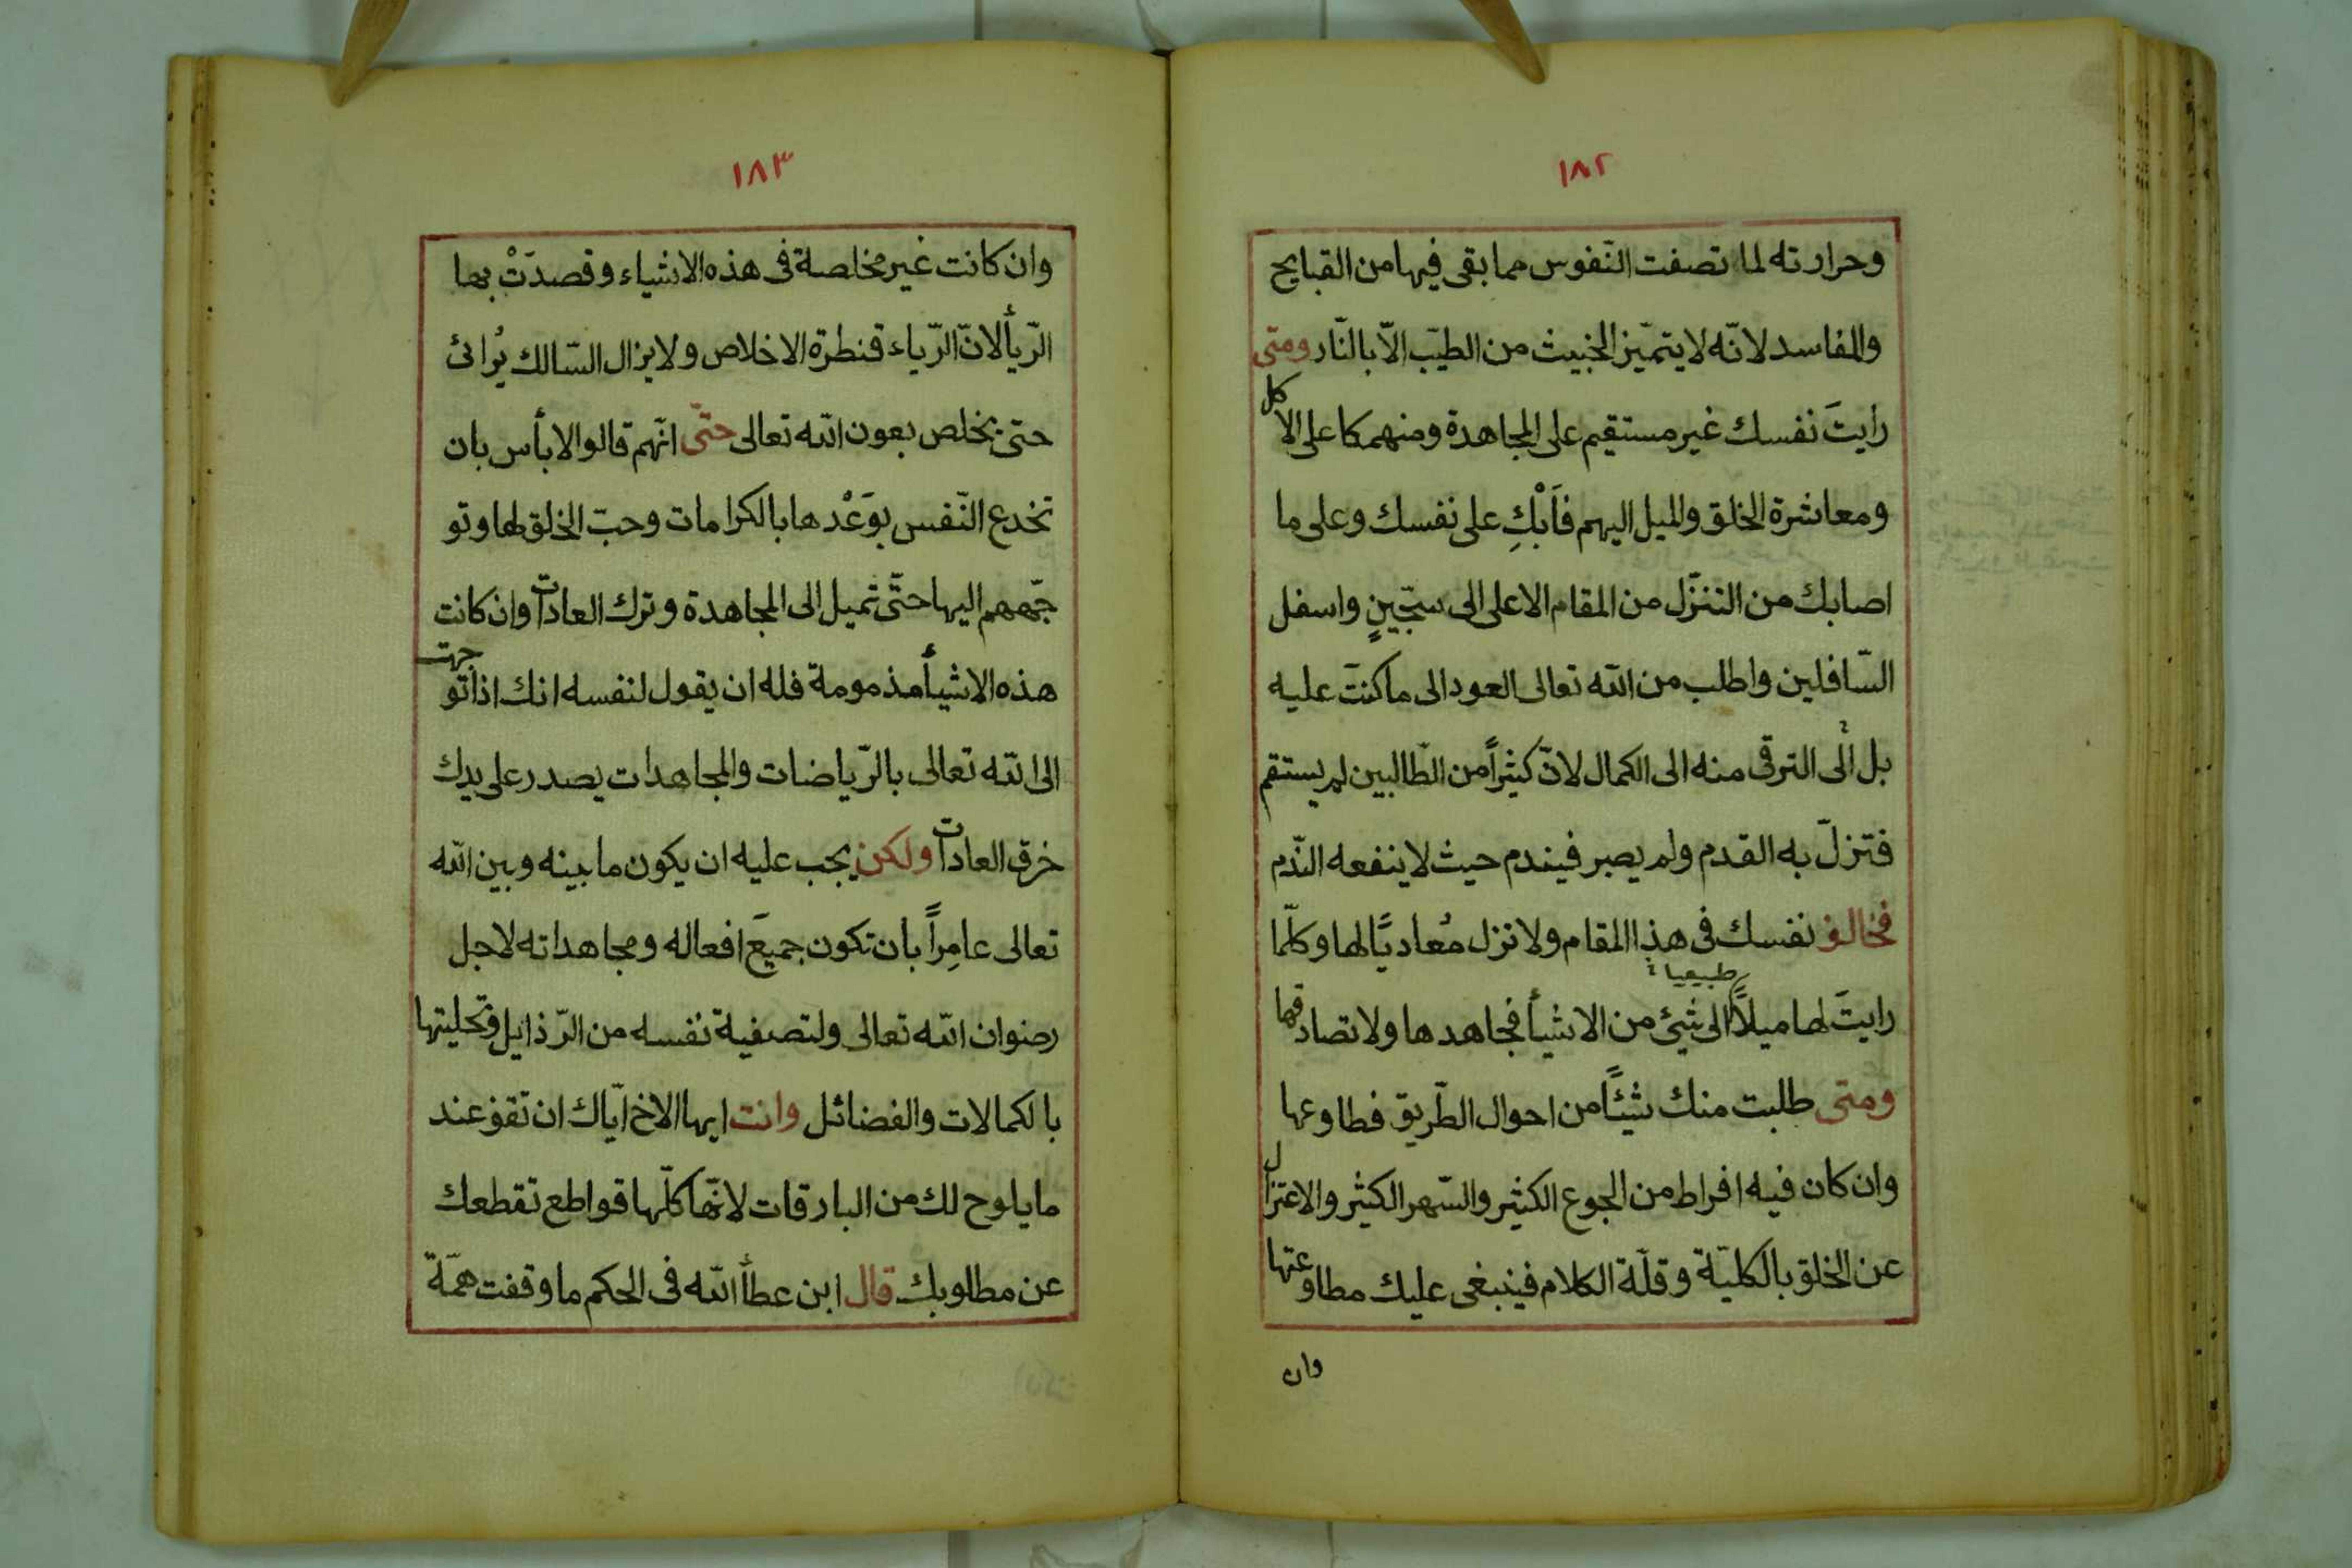 ١٨٢
وحرارته لما تصفت النّفوس مما بقى فيها من القبايح
والمفاسد لانّه لا يتميّز الخبيث من الطيّب الّا بالنّار ومتى
رايتَ نفسك غير مستقيم على المجاهدة ومنهمكا على الاكل
ومعاشرة الخلق والميل اليهم فَاَبْكِ على نفسك وعلى ما
اصابك من التنزّل من المقام الاعلى الى سجّينٍ واسفل
السّافلين واطلب من الله تعالى العود الى ما كنتَ عليه
بل الى الترقى منه الى الكمال لانّ كثيراً من الطّالبين لم يستقم
فتزلّ به القدم ولم يصبر فيندم حيث لا ينفعه النّدم
فخالف نفسك فى هذا المقام ولا تزل مُعاديًا لها وكلّما
طبيعيا
رايتَ لها ميلاً الى شئ من الاشيأ فجاهدها ولا تصادقها
ومتى طلبت منك شيئًا من احوال الطّريق فطاوعها
وان كان فيه افراط من الجوع الكثير والسّهر الكثير والاعتزال
عن الخلق بالكليّة وقلّة الكلام فينبغى عليك مطاوعتها
وان
١٨٣
وان كانت غير مخلصة فى هذه الاشياء وقصدَتْ بها
الرّيأ لانّ الرّياء قنطرة الاخلاص ولا يزال السّالك يُرائ
حتى يخلص بعون الله تعالى حتّى انّهم قالوا لا بأس بان
تخدع النّفس بوَعْدها بالكرامات وحبّ الخلق لها وتو
جّههم اليها حتّى تميل الى المجاهدة وترك العادات وان كانت
هذه الاشيأ مذمومة فله ان يقول لنفسه انك اذا توجهت
الى الله تعالى بالرّياضات والمجاهدات يصدر على يدك
خرق العادات ولكن يجب عليه ان يكون ما بينه وبين الله
تعالى عامِراً بان تكون جميعَ افعاله ومجاهداته لاجل
رضوان الله تعالى ولتصفية نفسه من الرّذايل وتحليتها
بالكمالات والفضائل وانت ايها الاخ ايّاك ان تقف عند
ما يلوح لك من البارقات لانّها كلّها قواطع تقطعك
عن مطلوبك قال ابن عطأ الله فى الحكم ما وقفت همّة